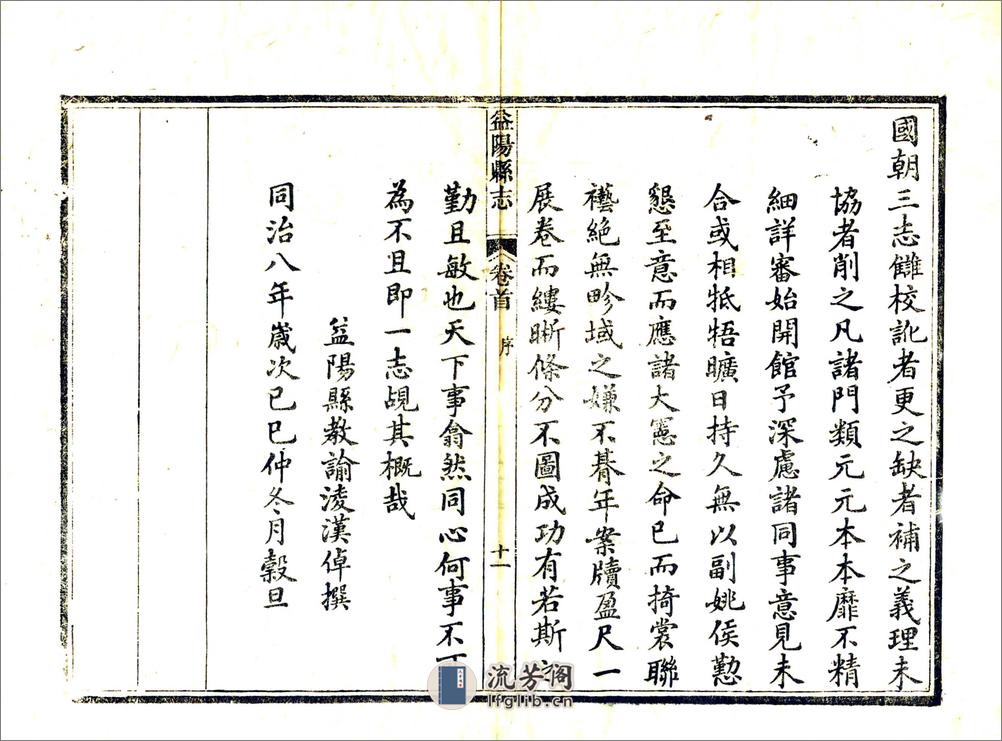 國朝三志讎校訛者更之缺者補之義理未
協者削之凡諸門類元元本本靡不精
細詳審始開館予深慮諸同事意見未
合或相牴牾曠日持久無以副姚侯懃
懇至意而應諸大憲之命已而掎裳聯
襼絶無畛域之嫌不朞年案牘盈尺一
展卷而縷晰條分不圖成功有若斯之
益陽縣志 卷首 序 十一
勤且敏也天下事翕然同心何事不可
為不且即一志覘其概哉
益陽縣教諭淩漢倬撰
同治八年歲次己巳仲冬月榖旦
流芳阁
lfglib.cn